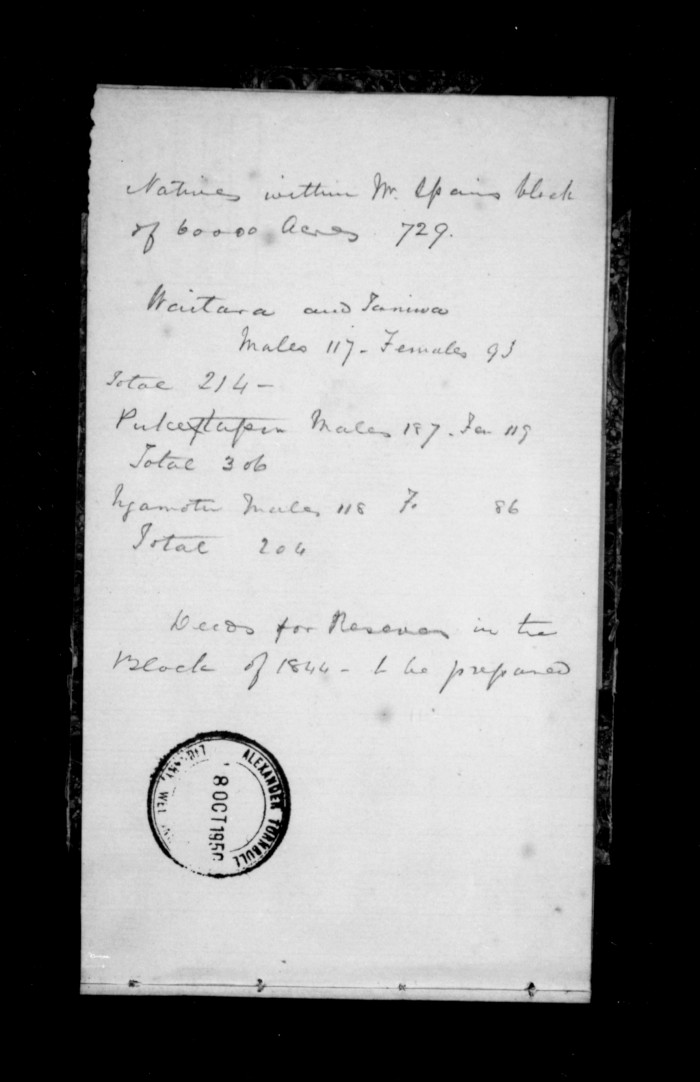 Natives within Mr. Spains block
of 60000 Acres 729.
Waitara and Taniwa
Males 117 - Females 93
Total 214 -
Puketapu Males 187. Fe 119
Total 306
Ngamotu Males 118 F. 86
Total 204
Deeds for Reserves in the
Block of 1844 - to be prepared
ALEXANDER TURNBULL
8 OCT 1950